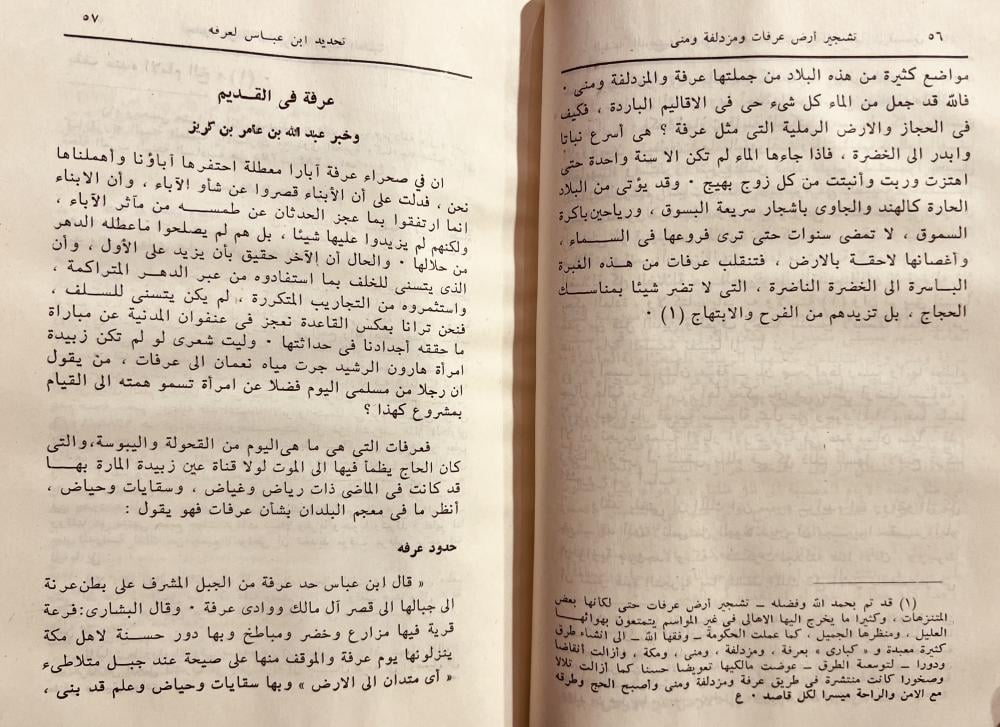 ٥٦ تشجير أرض عرفات ومزدلفة ومنى
مواضع كثيرة من هذه البلاد من جملتها عرفة والمزدلفة ومنى .
فالله قد جعل من الماء كل شىء حى فى الاقاليم الباردة ، فكيف
فى الحجاز والارض الرملية التى مثل عرفة ؟ هى أسرع نباتا
وابدر الى الخضرة ، فاذا جاءها الماء لم تكن الا سنة واحدة حتى
اهتزت وربت وأنبتت من كل زوج بهيج . وقد يؤتى من البلاد
الحارة كالهند والجاوى باشجار سريعة البسوق ، ورياحين باكرة
السموق ، لا تمضى سنوات حتى ترى فروعها فى الســماء ،
وأغصانها لاحقة بالارض ، فتنقلب عرفات من هذه الغبرة
الباسرة الى الخضرة الناضرة ، التى لا تضر شيئا بمناســك
الحجاج ، بل تزيدهم من الفرح والابتهاج (١) .
(١) قد تم بحمد الله وفضله ــ تشجير أرض عرفات حتى لكأنها بعض
المتنزهات ، وكثيرا ما يخرج اليها الاهالى فى غير المواسم يتمتعون بهوائهــا
العليل ، ومنظرها الجميل ، كما عملت الحكومة ــ وفقها الله ــ الى انشاء طرق
كثيرة معبدة و « كبارى » بعرفة ، ومزدلفة ، ومنى ، ومكة ، وأزالت أنقاضا
ودورا ــ لتوسعة الطرق ــ عوضت مالكيها تعويضا حسنا كما أزالت تلالا
وصخورا كانت منتشرة فى طريق عرفة ومزدلفة ومنى وأصبح الحج وطرقه
مع الامن والراحة ميسرا لكل قاصد . ع
تحديد ابن عباس لعرفه ٥٧
عرفة فى القــديم
وخبر عبد الله بن عامر بن كريز
ان في صحراء عرفة آبارا معطلة احتفرها آباؤنا وأهملناها
نحن ، فدلت على أن الأبناء قصروا عن شأو الآباء ، وأن الابناء
انما ارتفقوا بما عجز الحدثان عن طمســه من مآثر الآباء ،
ولكنهم لم يزيدوا عليها شيئا ، بل هم لم يصلحوا ماعطله الدهر
من حلالها . والحال أن الآخر حقيق بأن يزيد على الأول ، وأن
الذى يتسنى للخلف بما استفادوه من عبر الدهــر المتراكمة ،
واستثمروه من التجاريب المتكررة ، لم يكن يتسنى للســلف ،
فنحن ترانا بعكس القاعدة نعجز فى عنفوان المدنية عن مباراة
ما حققه أجدادنا فى حداثتها . وليت شعرى لو لم تكن زبيدة
امرأة هارون الرشيد جرت مياه نعمان الى عرفات ، من يقول
ان رجلا من مسلمى اليوم فضلا عن امرأة تسمو همته الى القيام
بمشروع كهذا ؟
فعرفات التى هى ما هى اليوم من القحولة واليبوسة،والتى
كان الحاج يظمأ فيها الى الموت لولا قناة عين زبيدة المارة بهــا
قد كانت فى الماضى ذات رياض وغياض ، وسقايات وحياض ،
أنظر ما فى معجم البلدان بشأن عرفات فهو يقول :
حدود عرفه
« قال ابن عباس حد عرفة من الجبل المشرف على بطن عرنة
الى جبالها الى قصر آل مالك ووادى عرفة . وقال البشارى:قرعة
قرية فيها مزارع وخضر ومباطخ وبها دور حسنة لاهل مكة
ينزلونها يوم عرفة والموقف منها على صيحة عند جبل متلاطىء
« أى متدان الى الارض » وبها سقايات وحياض وعلم قد بنى ،